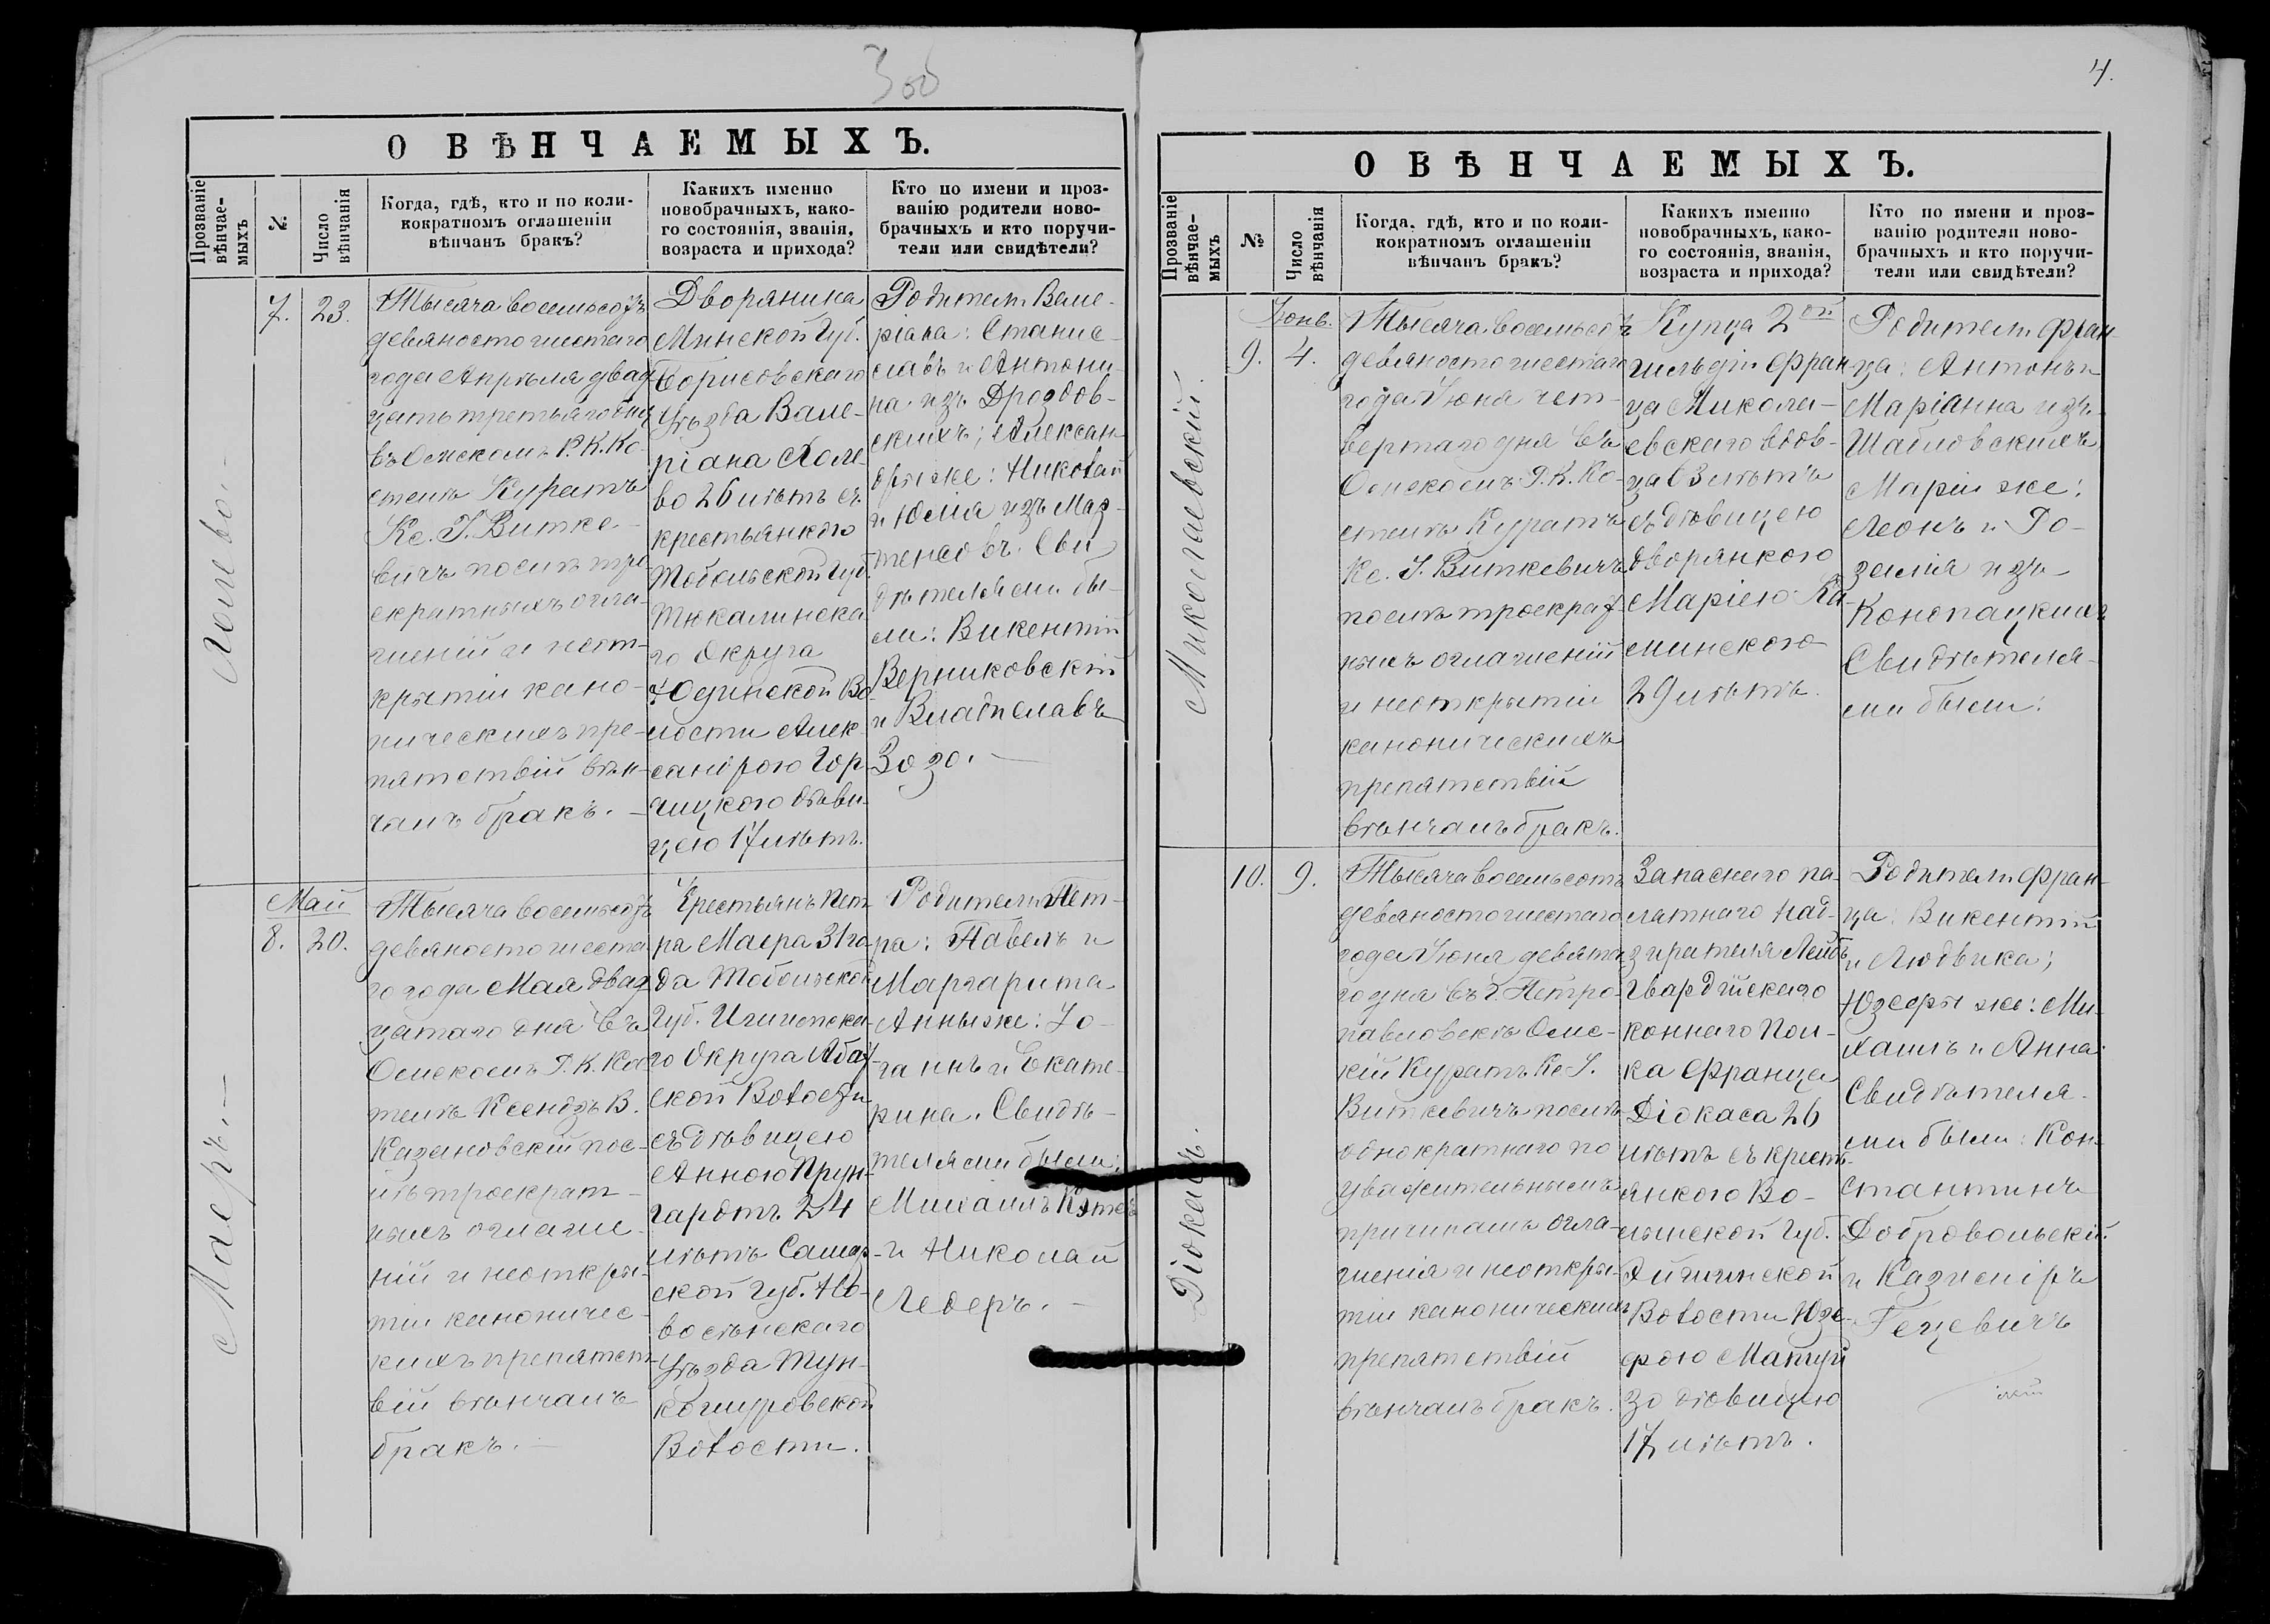 3 об
О ВѢНЧАЕМЫХЪ.
Прозваніе вѣнчае-мыхъ
№
Число вѣнчанія
Когда, гдѣ, кто и по коли-
кократномъ оглашеніи
вѣнчанъ бракъ?
Какихъ именно
новобрачныхъ, како-
го состоянія, званія,
возраста и прихода?
Кто по имени и проз-
ванію родители ново-
брачныхъ и кто поручи-
тели или свидѣтели?
7.
23.
Тысяча восемьсотъ
девяносто шестаго
года Апрѣля двад-
цать третьяго дня
въ Омскомъ Р. К. Ко-
стелѣ Куратъ
Кс. І. Витке-
вичъ послѣ тро-
екратныхъ огла-
шеній и неот-
крытіи кано-
ническихъ пре-
пятствій вѣн-
чалъ бракъ. —
Дворянина
Минской Губ.
Борисовскаго
Уѣзда Вале-
ріана
во 26 лѣтъ съ
крестьянкою
Тобольской Губ.
Тюкалинска
го Округа
Юдинской Во
лости Алек-
сандрою Гор-
лицкою дѣви-
цею 17 лѣтъ.
Родители Вале-
ріана: Станис-
лавъ и Антони-
на изъ Дроздов-
скихъ; Алексан-
дры же: Николай
и Юлія изъ
Сви
дѣтелями бы-
ли: Викентій
Верниковскій
и Владиславъ
Зозо. —
Май
8.
20.
Маеръ. —
Тысяча восемьсотъ
девяносто шеста-
го года Мая двад-
цатаго дня въ
Омскомъ Р. К. Кос
телѣ Ксендзъ В.
Казановскій пос-
лѣ троекрат-
ныхъ оглаше-
ній и неоткры-
тіи каноничес-
кихъ препятст-
вій вѣнчалъ
бракъ. —
Крестьянъ Пет-
ра Маера 31 го-
да Тобольской
Губ. Ишимска-
го Округа Абат-
ской Волости
съ дѣвицею
Анною Прун-
гардтъ 24
лѣтъ Самар-
ской Губ. Но-
воузенскаго
Уѣзда Тун-
кошуровской
Волости.
Родители Пет-
ра: Павелъ и
Маргарита
Анны же: Іо-
ганнъ и Екате-
рина. Свидѣ-
телями были:
Михаилъ
и Николай
Ледеръ. —
4.
О ВѢНЧАЕМЫХЪ.
Прозваніе вѣнчае-мыхъ
№
Число вѣнчанія
Когда, гдѣ, кто и по коли-
кократномъ оглашеніи
вѣнчанъ бракъ?
Какихъ именно
новобрачныхъ, како-
го состоянія, званія,
возраста и прихода?
Кто по имени и проз-
ванію родители ново-
брачныхъ и кто поручи-
тели или свидѣтели?
Іюнь.
9.
4.
Миколаевскій.
Тысяча восемьсотъ
девяносто шестаго
года Іюня чет-
вертаго дня въ
Омскомъ Р. К. Ко-
стелѣ Куратъ
Кс. І. Виткевичъ
послѣ троекрат-
ныхъ оглашеній
и неоткрытіи
каноническихъ
препятствій
вѣнчалъ бракъ.
Купца 2ой
гильдіи Фран-
ца Микола-
евскаго вдов-
ца 63 лѣтъ
съ дѣвицею
дворянкою
Маріею Ка-
минскою
29 лѣтъ.
Родители Фран-
ца: Антонъ и
Маріанна изъ
Шабловскихъ
Маріи же:
Леонъ и Ро-
залія изъ
Конопацкихъ
Свидѣтеля-
ми были:
10.
9.
Діокасъ.
Тысяча восемьсотъ
девяносто шестаго
года Іюня девята-
го дня въ г. Петро-
павловскѣ Омс-
кій Куратъ Кс. І.
Виткевичъ послѣ
однократнаго по
уважительнымъ
причинамъ огла-
шенія и неоткры-
тіи каноническихъ
препятствій
вѣнчалъ бракъ.
Запаснаго па-
латнаго над-
зирателя Лейбъ
Гвардійскаго
коннаго Пол-
ка Франца
Діокаса 26
лѣтъ съ кресть-
янкою Во-
лынской Губ.
Волости Юзе-
фою
зо дѣвицею
17 лѣтъ.
Родители Фран-
ца: Викентій
и Людвика;
Юзефы же: Ми-
хаилъ и Анна.
Свидѣтеля-
ми были: Кон-
стантинъ
Добровольскій
и Казиміръ
Гецевичъ